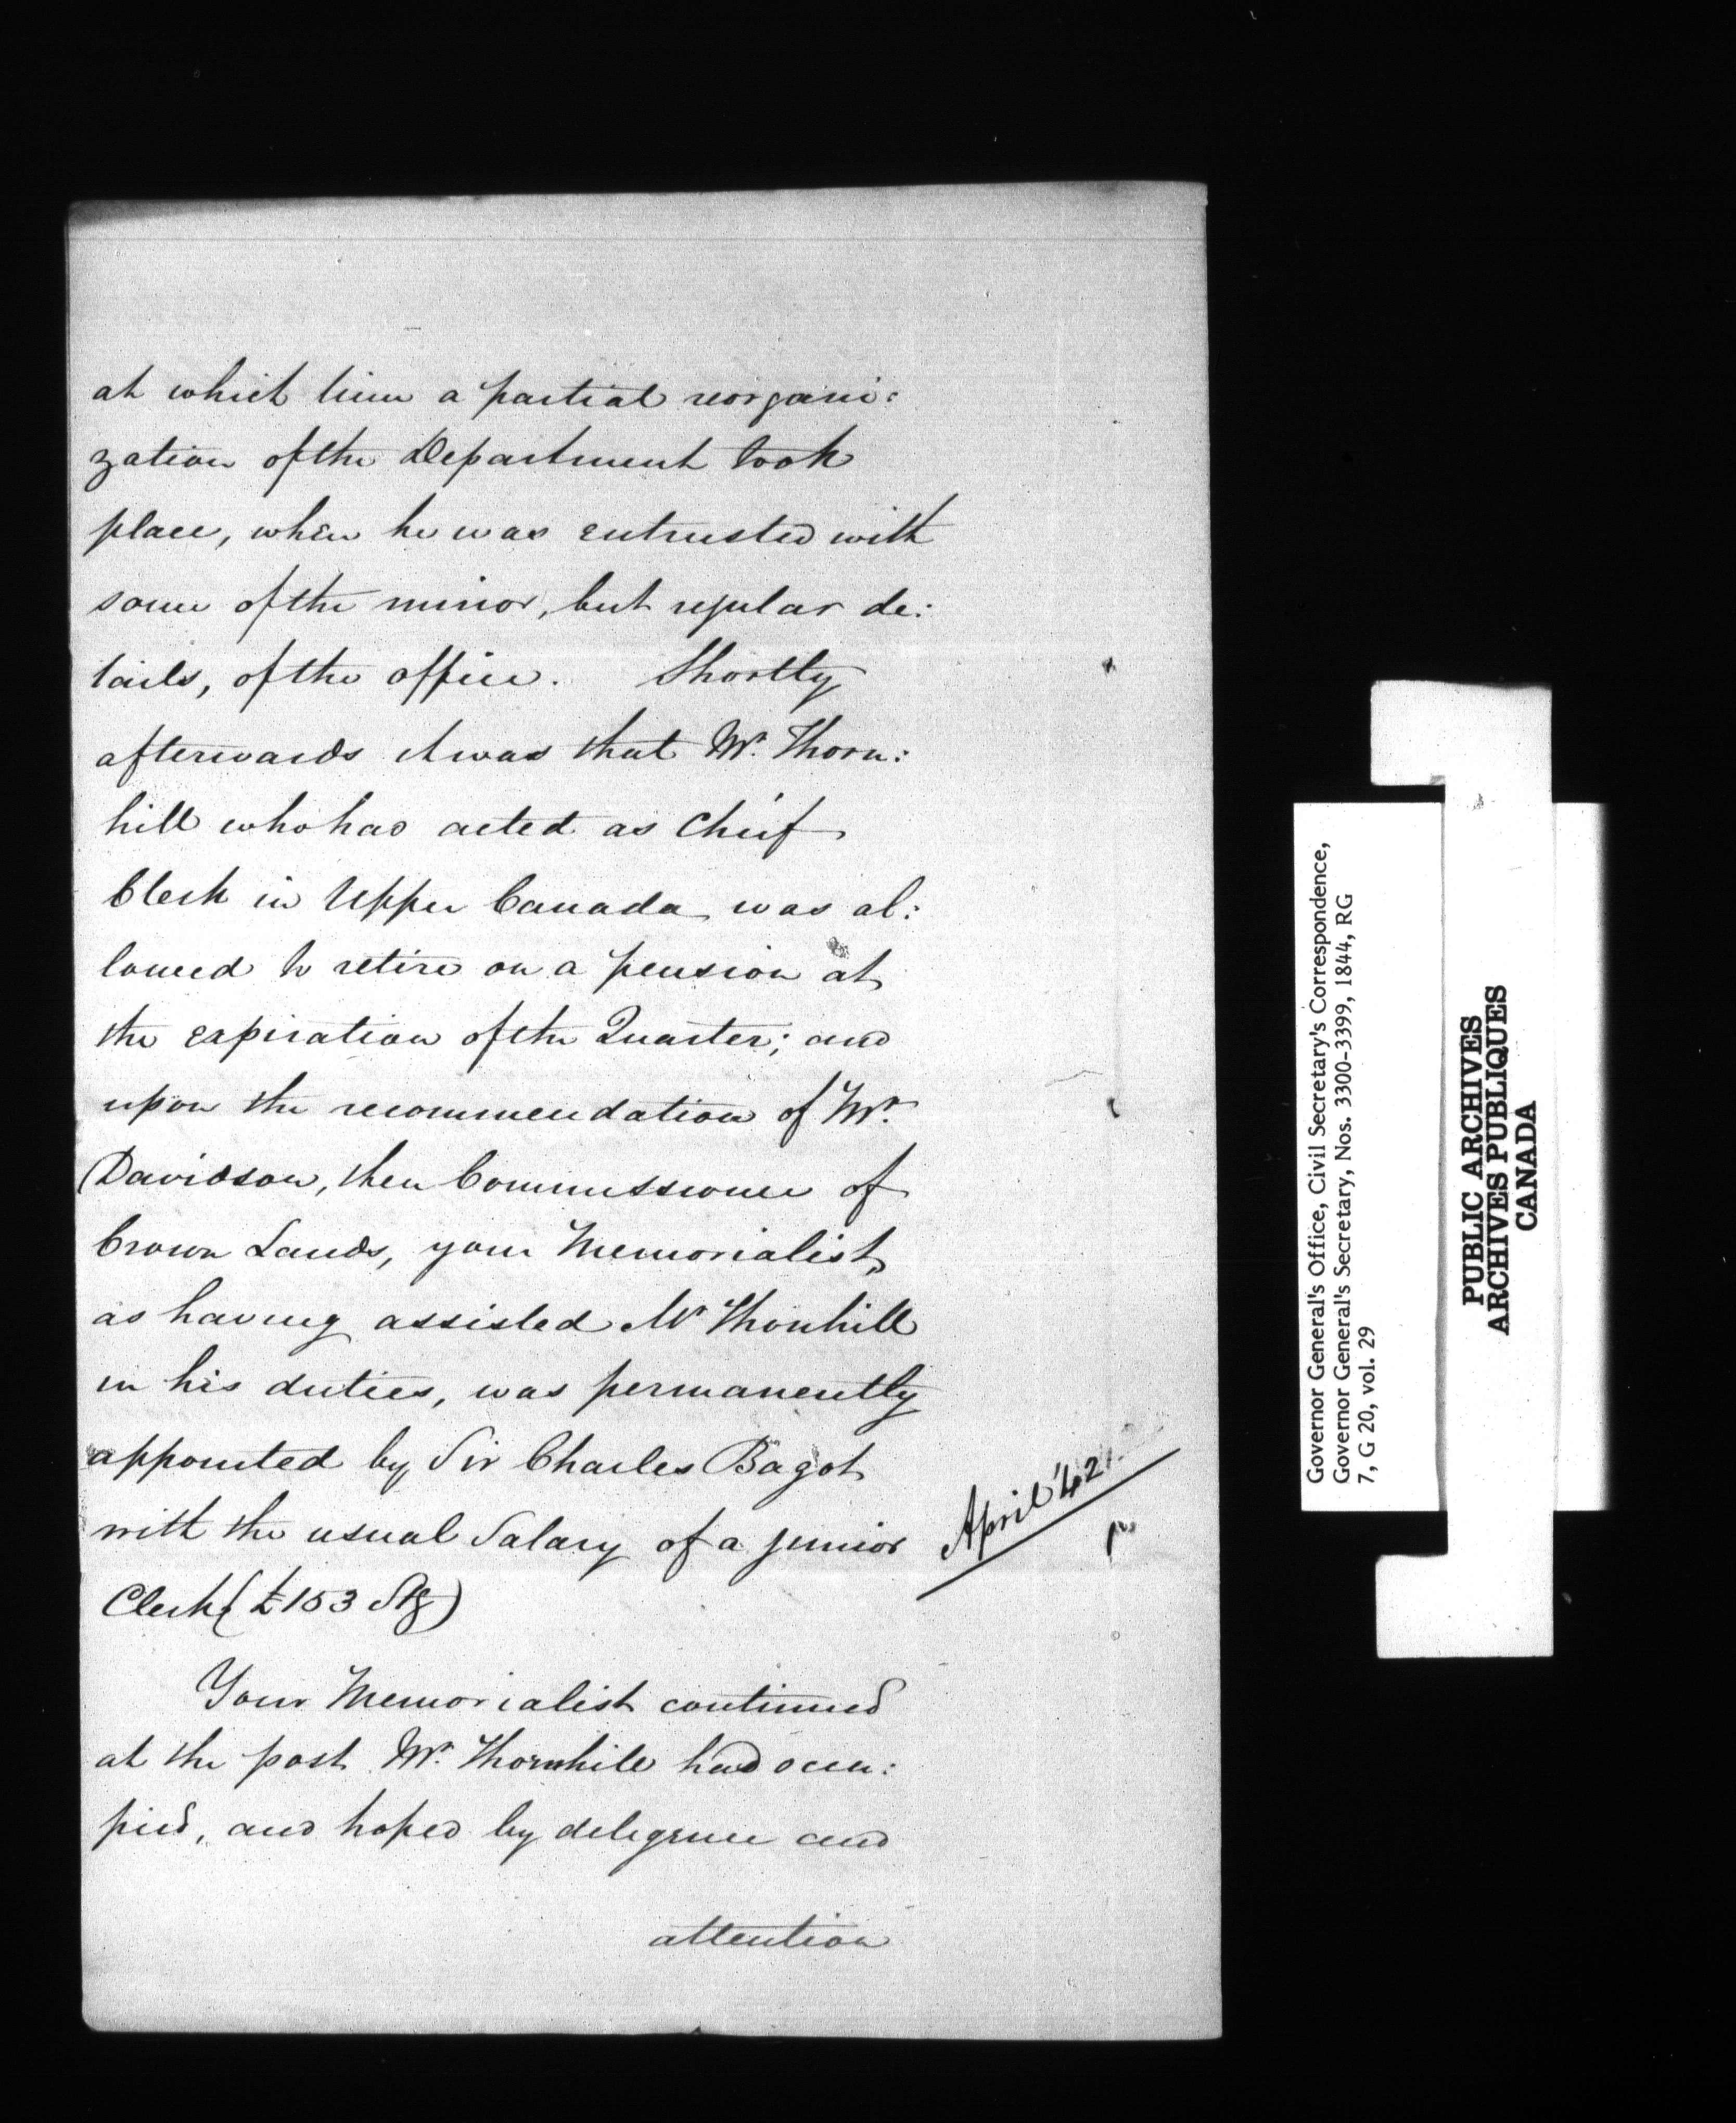 at which time a partial reorgani:
zation of the Department took
place, when he was entrusted with
some of the minor, but regular de:
tails, of the office. Shortly
afterwards it was that Mr. Thorn:
hill who had acted as Chief
Clerk in Upper Canada was al:
lowed to retire on a pension at
the expiration of the Quarter; and
upon the recommendation of Mr.
Davidson, then Commissioner of
Crown Lands, your Memorialist,
as having assisted Mr Thornhill
in his duties, was permanently
appointed by Sir Charles Bagot
with the usual Salary of a junior
Clerk (£153 Stg)
April '42.
Your Memorialist continued
at the post Mr. Thornhill had occu:
pied, and hoped by diligence and
attention
Governor General's Office, Civil Secretary's Correspondence,
Governor General's Secretary, Nos. 3300-3399, 1844, RG
7, G 20, vol. 29
PUBLIC ARCHIVES
ARCHIVES PUBLIQUES
CANADA